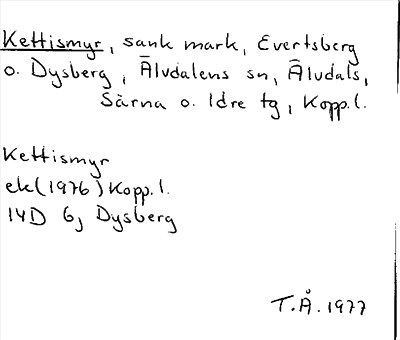 Kettismyr, sank mark, Evertsberg
o. Dysberg, Älvdalens sn, Älvdals,
Särna o. Idre tg, Kopp.l.
Kettismyr
ek(1976) Kopp.l.
14D 6j Dysberg
T.Å. 1977